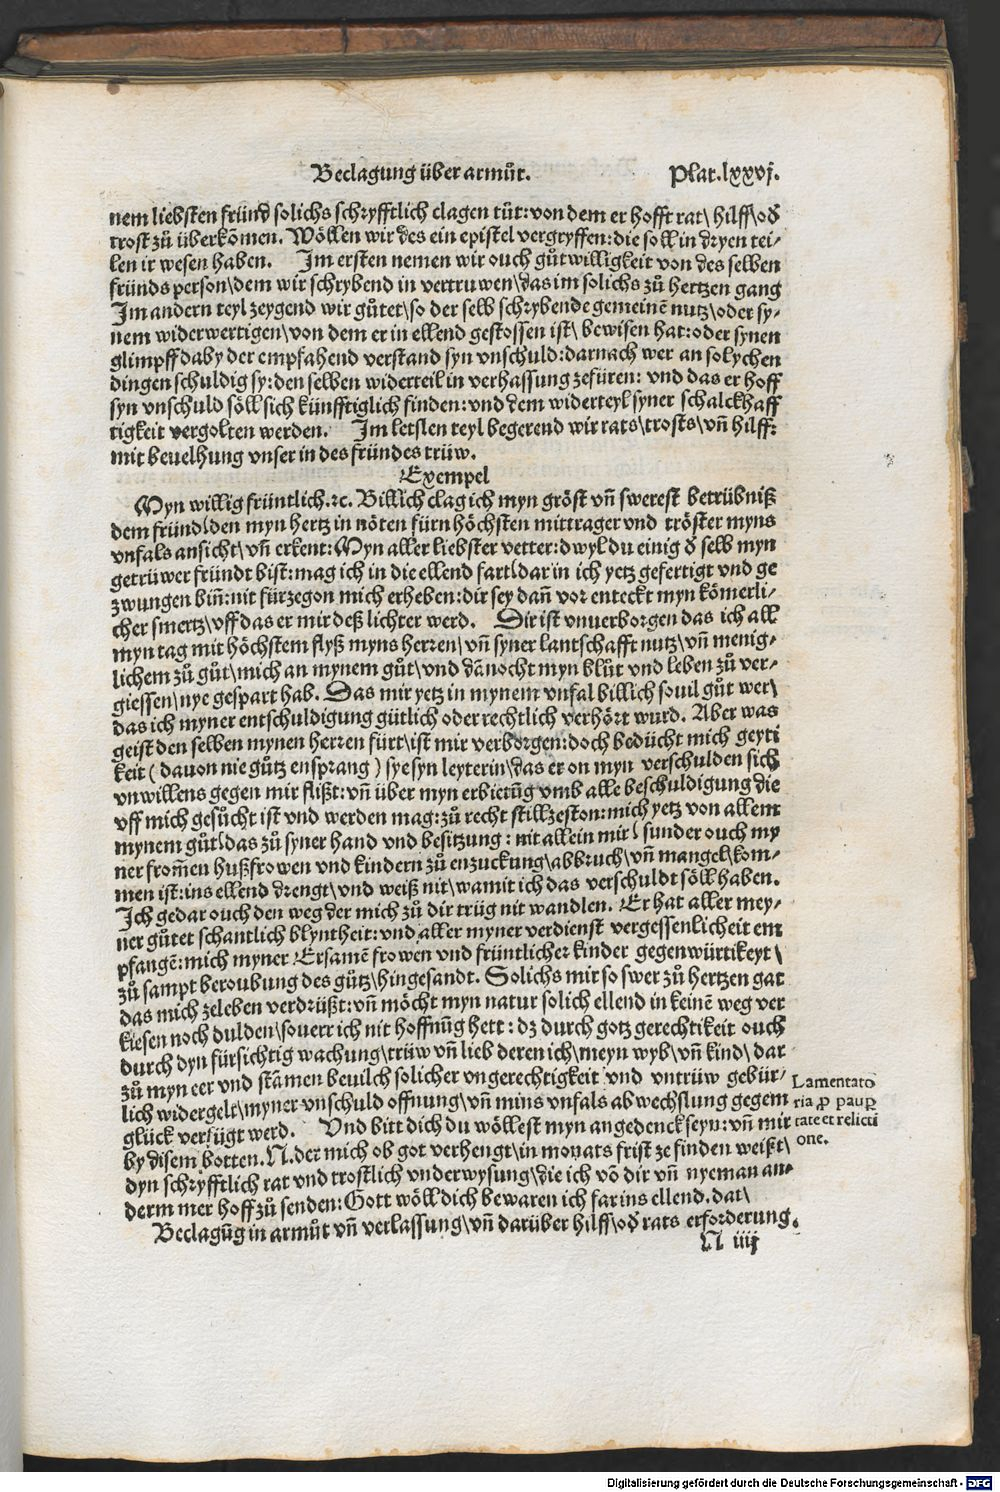 Beclagung über armůt. Plat.lxxvj.
nem liebsten fründ solichs schryfftlich clagen tůt: von dem er hofft rat\ hilff\ oď
trost zů überkõmen. Wöllen wir des ein epistel vergryffen: die soll in dryen tei⸗
len ir wesen haben. Im ersten nemen wir ouch gůtwilligkeit von des selben
fründs person\ dem wir schrybend in vertruwen\ das im solichs zů hertzen gang
Im andern teyl zeygend wir gůtet\ so der selb schrybende gemeinẽ nutz\ oder sy⸗
nem widerwertigen\ von dem er in ellend gestossen ist\ bewisen hat: oder synen
glimpff daby der empfahend verstand syn vnschuld: darnach wer an solychen
dingen schuldig sy: den selben widerteil in verhassung zefüren: vnd das er hoff
syn vnschuld söll sich künfftiglich finden: vnd dem widerteyl syner schalckhaff
tigkeit vergolten werden. Im letsten teyl begerend wir rats\ trosts\ vñ hilff:
mit beuelhung vnser in des fründes trüw.
Exempel
Myn willig früntlich.ꝛc. Billich clag ich myn gröst vñ swerest betrübniß
dem fründ\ den myn hertz in nöten fürn höchsten mittrager vnd tröster myns
vnfals ansicht\ vñ erkent: Myn aller liebster vetter: dwyl du einig ď selb myn
getrüwer fründt bist: mag ich in die ellend fart\ dar in ich yetz gefertigt vnd ge
zwungen biñ: nit fürzegon mich erheben: dir sey dañ vor enteckt myn kömerli⸗
cher smertz\ vff das er mir deß lichter werd. Dir ist vnuerborgen das ich all
myn tag mit höchstem flyß myns herren\ vñ syner lantschafft nutz\ vñ menig⸗
lichem zů gůt\ mich an mynem gůt\ vnd dẽnocht myn blůt vnd leben zů ver⸗
giessen\ nye gespart hab. Das mir yetz in mynem vnfal billich souil gůt wer\
das ich myner entschuldigung gütlich oder rechtlich verhört wurd. Aber was
geist den selben mynen herren fürt\ ist mir verborgen: doch bedücht mich geyti
keit ( dauon nie gůtz ensprang ) sye syn leyterin\ das er on myn verschulden sich
vnwillens gegen mir flißt: vñ über myn erbietũg vmb alle beschuldigung die
vff mich gesůcht ist vnd werden mag: zů recht stillzeston: mich yetz von allem
mynem gůt\ das zů syner hand vnd besitzung : nit allein mir\ sunder ouch my
ner from̃en hußfrowen vnd kindern zů enzuckung\ abbruch\ vñ mangel\ kom⸗
men ist: ins ellend drengt\ vnd weiß nit\ wamit ich das verschuldt söll haben.
Ich gedar ouch den weg der mich zů dir trüg nit wandlen. Er hat aller mey⸗
ner gůtet schantlich blyntheit: vnd aller myner verdienst vergessenlicheit em
pfangẽ: mich myner Ersamẽ frowen vnd früntlicher kinder gegenwürtikeyt\
zů sampt beroubung des gůtz\ hingesandt. Solichs mir so swer zů hertzen gat
das mich zeleben verdrüßt: vñ möcht myn natur solich ellend in keinẽ weg ver
kiesen noch dulden\ souerr ich nit hoffnũg hett : dz durch gotz gerechtikeit ouch
durch dyn fürsichtig wachung\ trüw vñ lieb deren ich\ meyn wyb\ vñ kind\ dar
zů myn eer vnd stãmen beuilch solicher vngerechtigkeit vnd vntrüw gebür⸗
lich widergelt\ myner vnschuld offnung\ vñ mins vnfals abwechslung gegem
glück verfügt werd. Vnd bitt dich du wöllest myn angedenck seyn: vñ mir
by disem botten. N. der mich ob got verhengt\ in monats frist ze finden weißt\
dyn schryfftlich rat vnd trostlich vnderwysung\ die ich võ dir vñ nyeman an⸗
derm mer hoff zů senden: Gott wöll dich bewaren ich far ins ellend. dat\
Beclagũg in armůt vñ verlassung\ vñ darüber hilff\ oď rats erforderung.
N iiij
Lamentato
ria ꝓ pauꝑ
tate et relicti
one.
Digitalisierung gefördert durch die Deutsche Forschungsgemeinschaft - DFG